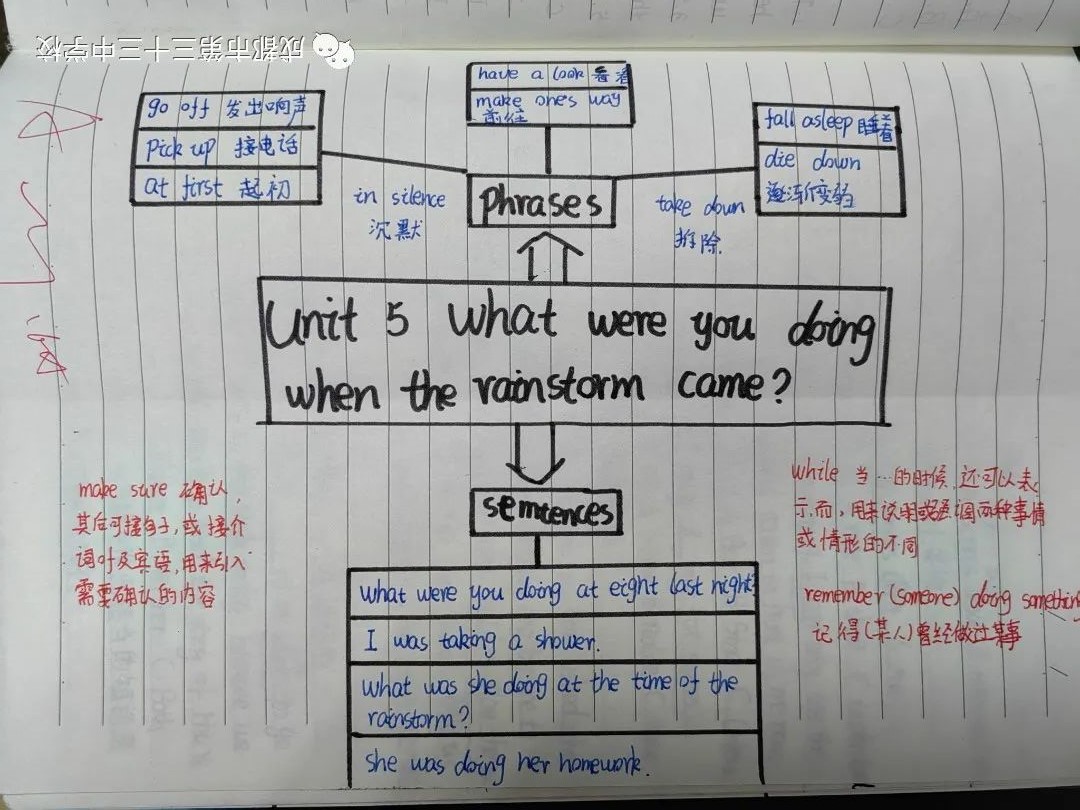 成都市第三十三中学校
have a look 看看
make one's way
前往
go off 发出响声
Pick up 接电话
at first 起初
fall asleep 睡着
die down
逐渐变弱
in silence
沉默
Phrases
take down
拆除
Unit 5 What were you doing
when the rainstorm came?
make sure 确认,
其后可接句子,或接介
词of及宾语,用来引入
需要确认的内容
while 当…的时候,还可以表
示而,用来说明或强调两种事情
或情形的不同
remember (someone) doing something
记得(某人)曾经做过某事
sentences
what were you doing at eight last night?
I was taking a shower.
what was she doing at the time of the
rainstorm?
she was doing her homework.